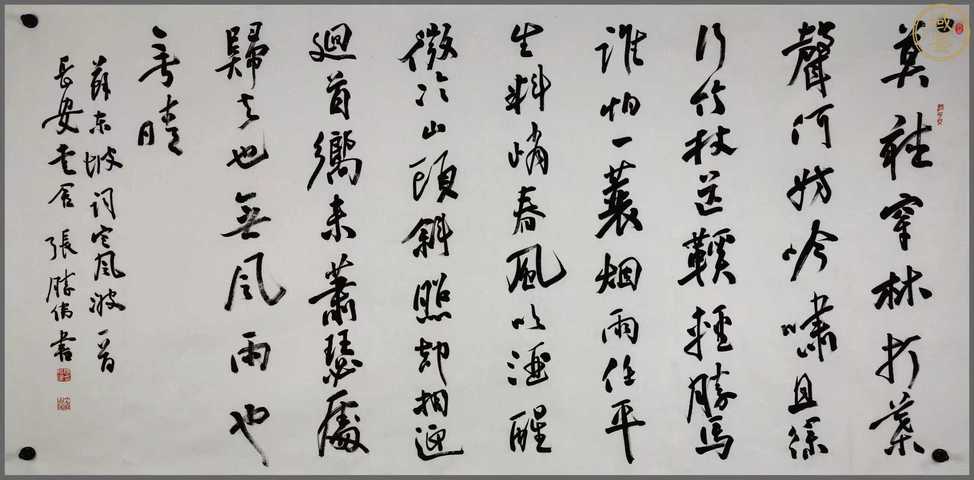 莫聽穿林打葉
聲何妨吟嘯且徐
行竹杖芒鞵輕勝馬
誰怕一蓑烟雨任平
生料峭春風吹酒醒
微冷山頭斜照却相迎
迴首嚮來蕭瑟處
歸去也無風雨也
無晴
蘇東坡詞定風波一首
長安 張勝偉書